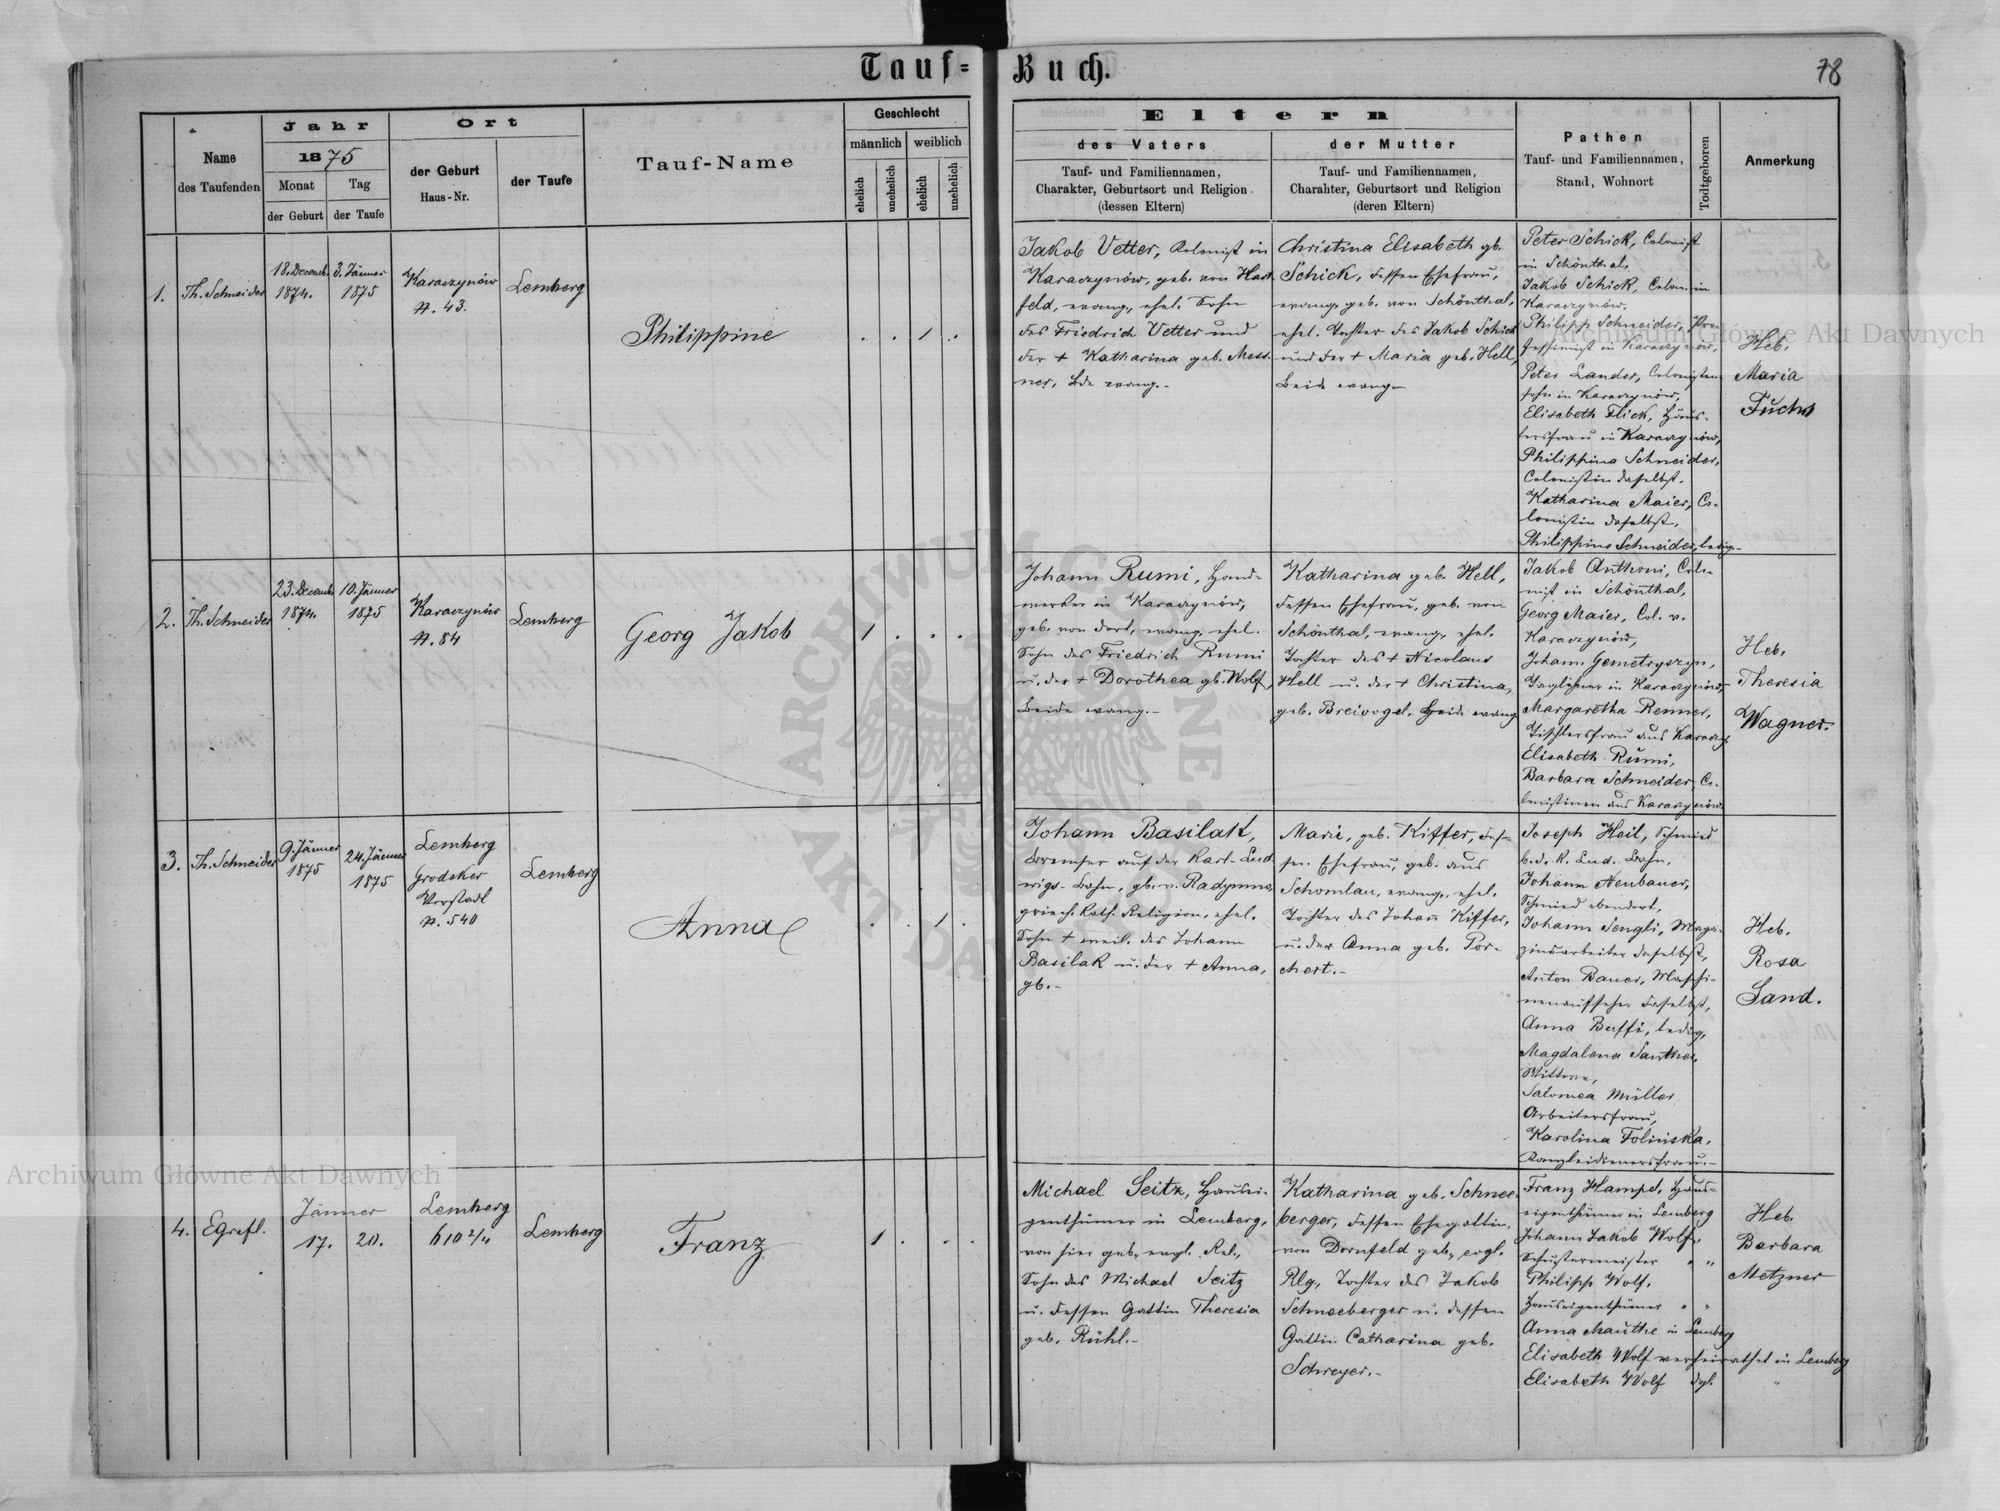 Tauf= Buch.
78
Name
des Taufenden
Jahr
1875
Monat
Tag
der Geburt
der Taufe
Ort
der Geburt
Haus-Nr.
der Taufe
Tauf-Name
Geschlecht
männlich
weiblich
ehelich
unehelich
ehelich
unehelich
Eltern
des Vaters
Tauf- und Familiennamen,
Charakter, Geburtsort und Religion
(dessen Eltern)
der Mutter
Tauf- und Familiennamen,
Charahter, Geburtsort und Religion
(deren Eltern)
Pathen
Tauf- und Familiennamen,
Stand, Wohnort
Todtgeboren
Anmerkung
1.
Th. Schneider
18. Decemb.
1874.
3. Jänner
1875
Karaczynów
N. 43.
Lemberg
Philippine
. . 1 .
Jakob Vetter, Kolonist in
Karaczynów, geb. von Hart
feld, evang., ehel. Sohn
des Friedrich Vetter und
der + Katharina geb. Mess-
ner, bde evang.-
Christina Elisabeth gb.
Schick, dessen Ehefrau,
evang. geb. von Schönthal,
ehel. Tochter des Jakob Schick
und der + Maria geb. Hell,
beide evang.-
Peter Schick, Colonist
in Schönthal,
Jakob Schick, Colon. in
Karaczynów.
Philipp Schneider, Pro-
fessionist in Karaczynów,
Peter Lander, Colonisten
sohn in Karaczynów,
Elisabeth Flick, Häus-
lersfrau in Karaczynów,
Philippina Schneider,
Colonistin daselbst,
Katharina Maier, Co-
lonistin daselbst,
Philippine Schneider, ledig.-
Heb.
Maria
Fuchs
2.
Th. Schneider
23. Decemb.
1874.
10. Jänner
1875
Karaczynów
N. 84
Lemberg
Georg Jakob
1 . . .
Johann Rumi, Hand-
werker in Karaczynów,
geb. von dort, evang., ehel.
Sohn des Friedrich Rumi
u. der + Dorothea gb. Wolf,
beide evang.-
Katharina geb. Hell,
dessen Ehefrau, geb. von
Schönthal, evang., ehel.
Tochter des + Nicolaus
Hell u. der + Christina,
geb. Breivogel, beide evang.
Jakob Anthoni, Colo-
nist in Schönthal,
Georg Maier, Col. v.
Karaczynów,
Johann Gemetryszyn,
Taglöhner in Karaczynów,
Margaretha Renner,
Tischlersfrau aus Karaczy.
Elisabeth Rumi,
Barbara Schneider, Co-
lonistinen aus Karaczynów
Heb.
Theresia
Wagner.
3.
Th. Schneider
9. Jänner
1875
24. Jänner
1875
Lemberg
Grodeker
Vorstadt
N. 540
Lemberg
Anna
. . 1 .
Johann Basilak,
Bremser auf der Karl-Lud
wigs-Bahn, gb. v. Radymno,
griech. kath. Religion, ehel.
Sohn + weil. des Johann
Basilak u. der + Anna,
gb.-
Marie, geb. Kiffer, des-
sen Ehefrau, geb. aus
Schomlau, evang., ehel.
Tochter des Johan Kiffer,
u. der Anna geb. Por-
chert.-
Joseph Heil, Schmied
b. d. K. Lud. Bahn,
Johann Neubauer,
Schmied ebendort,
Johann Sengli, Maga-
zinsarbeiter daselbst,
Anton Bauer, Maschi-
nenaufseher daselbst,
Anna Buffi, ledig,
Magdalena Santher,
Wittwe,
Salomea Müller
Arbeitersfrau,
Karolina Folińska,
Kanzleidienersfrau.-
Heb.
Rosa
Sand.
4.
EGrefl.
Jänner
17.
20.
Lemberg
610 2/4
Lemberg
Franz
1 . . .
Michael Seitz, Hausei-
genthümer in Lemberg,
von hier geb., evgl. Rel.,
Sohn des Michael Seitz
u. dessen Gattin Theresia
geb. Rühl.-
Katharina geb. Schnee-
berger, dessen Ehegattin,
von Dornfeld geb., evgl.
Rlg., Tochter des Jakob
Schneeberger u. dessen
Gattin Catharina geb.
Schreyer.-
Franz Hampel, Haus-
eigenthümer in Lemberg
Johann Jakob Wolf,
Schustermeister " "
Philipp Wolf,
Hauseigenthümer " "
Anna Mauthe in Lemberg
Elisabeth Wolf verheirathet in Lemberg
Elisabeth Wolf dgl. "
Heb.
Barbara
Metzner
Archiwum Główne Akt Dawnych
Archiwum Główne Akt Dawnych